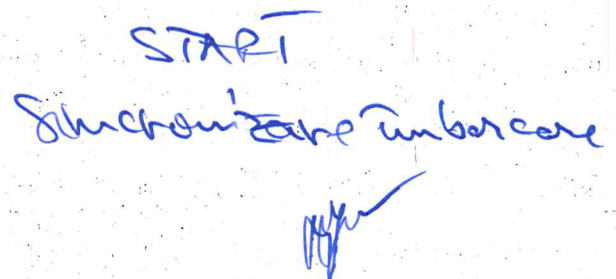 START
Sincronizare îmbarcare